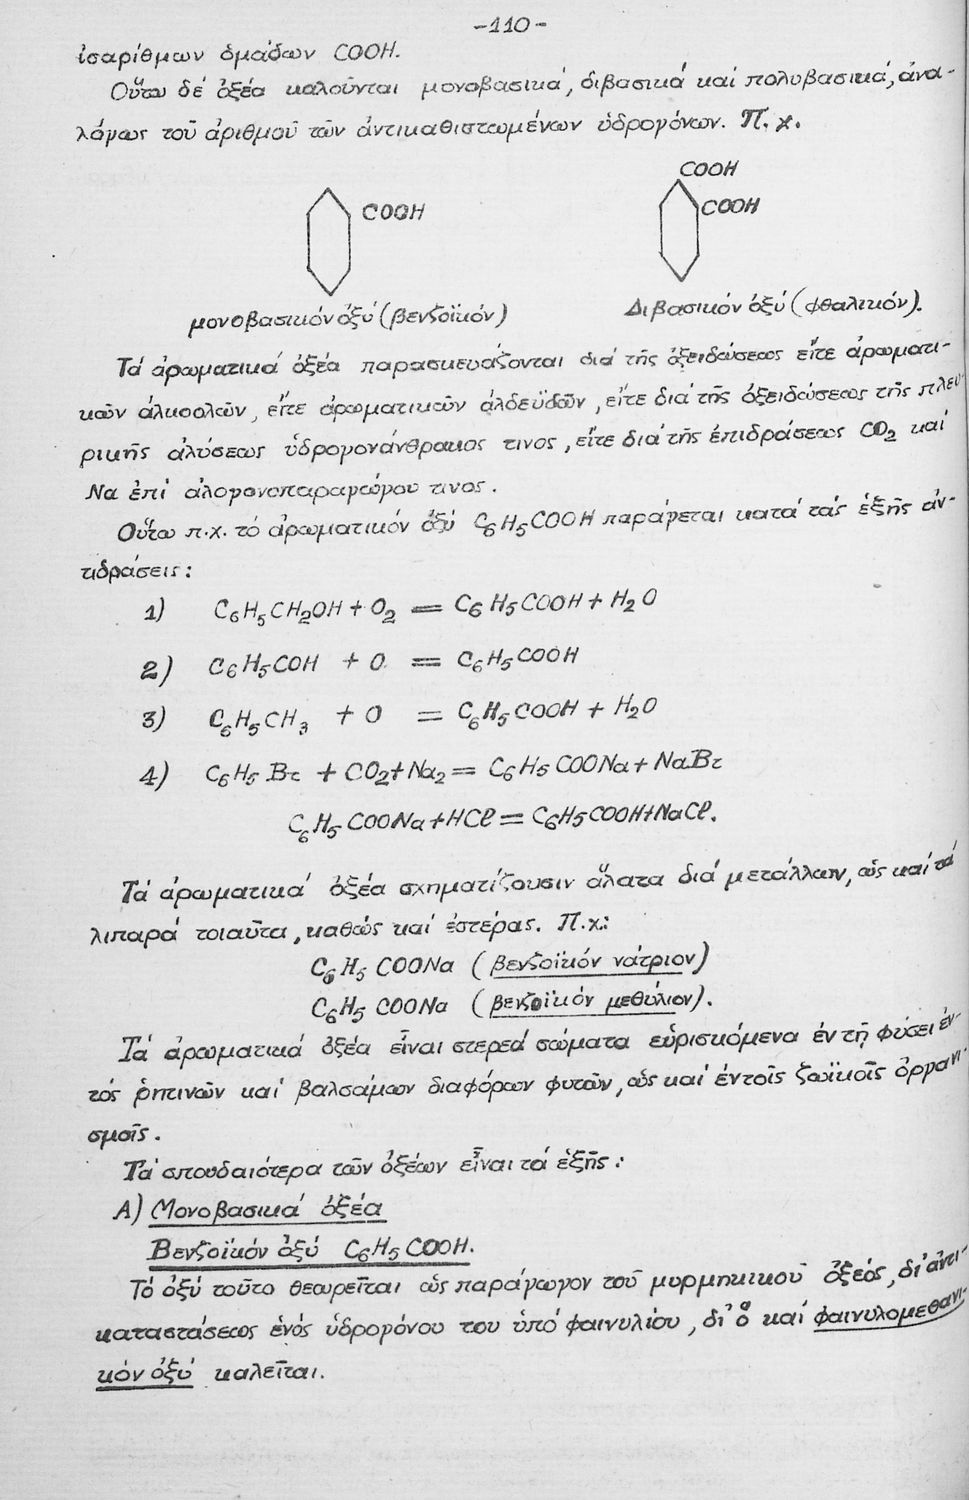 -110-
ἰσαρίθμων ὁμάδων COOH.
Οὕτω δέ ὀξέα καλοῦνται μονοβασικά, διβασικά καί πολυβασικά, ἀνα-
λόγως τοῦ ἀριθμοῦ τῶν ἀντικαθιστωμένων ὑδρογόνων. Π.χ.
COOH
COOH
COOH
μονοβασικόν ὀξύ (βενζοϊκόν)
Διβασικόν ὀξύ (φθαλικόν).
Τά ἀρωματικά ὀξέα παρασκευάζονται διά τῆς ὀξειδώσεως εἴτε ἀρωματι-
κῶν ἀλκοολῶν, εἴτε ἀρωματικῶν ἀλδεϋδῶν, εἴτε διά τῆς ὀξειδώσεως τῆς πλευ-
ρικῆς ἀλύσεως ὑδρογονάνθρακος τινος, εἴτε διά τῆς ἐπιδράσεως CO₂ καί
Na ἐπί ἀλογονοπαραγώγου τινος.
Οὕτω π.χ. τό ἀρωματικόν ὀξύ C₆H₅COOH παράγεται κατά τάς ἑξῆς ἀν-
τιδράσεις:
1) C₆H₅CH₂OH + O₂ = C₆H₅COOH + H₂O
2) C₆H₅COH + O = C₆H₅COOH
3) C₆H₅CH₃ + O = C₆H₅COOH + H₂O
4) C₆H₅Br + CO₂ + Na₂ = C₆H₅COONa + NaBr
C₆H₅COONa + HCl = C₆H₅COOH + NaCl.
Τά ἀρωματικά ὀξέα σχηματίζουσιν ἅλατα διά μετάλλων, ὡς καί τά
λιπαρά τοιαῦτα, καθώς καί ἐστέρας. Π.χ:
C₆H₅COONa (βενζοϊκόν νάτριον)
C₆H₅COONa (βενζοϊκόν μεθύλιον).
Τά ἀρωματικά ὀξέα εἶναι στερεά σώματα εὑρισκόμενα ἐν τῇ φύσει ἐν-
τός ῥητινῶν καί βαλσάμων διαφόρων φυτῶν, ὡς καί ἐν τοῖς ζωϊκοῖς ὀργανι-
σμοῖς.
Τά σπουδαιότερα τῶν ὀξέων εἶναι τά ἑξῆς:
Α) Μονοβασικά ὀξέα
Βενζοϊκόν ὀξύ C₆H₅COOH.
Τό ὀξύ τοῦτο θεωρεῖται ὡς παράγωγον τοῦ μυρμηκικοῦ ὀξέος, δι' ἀντι-
καταστάσεως ἑνός ὑδρογόνου του ὑπό φαινυλίου, δι' ὅ καί φαινυλομεθανι-
κόν ὀξύ καλεῖται.